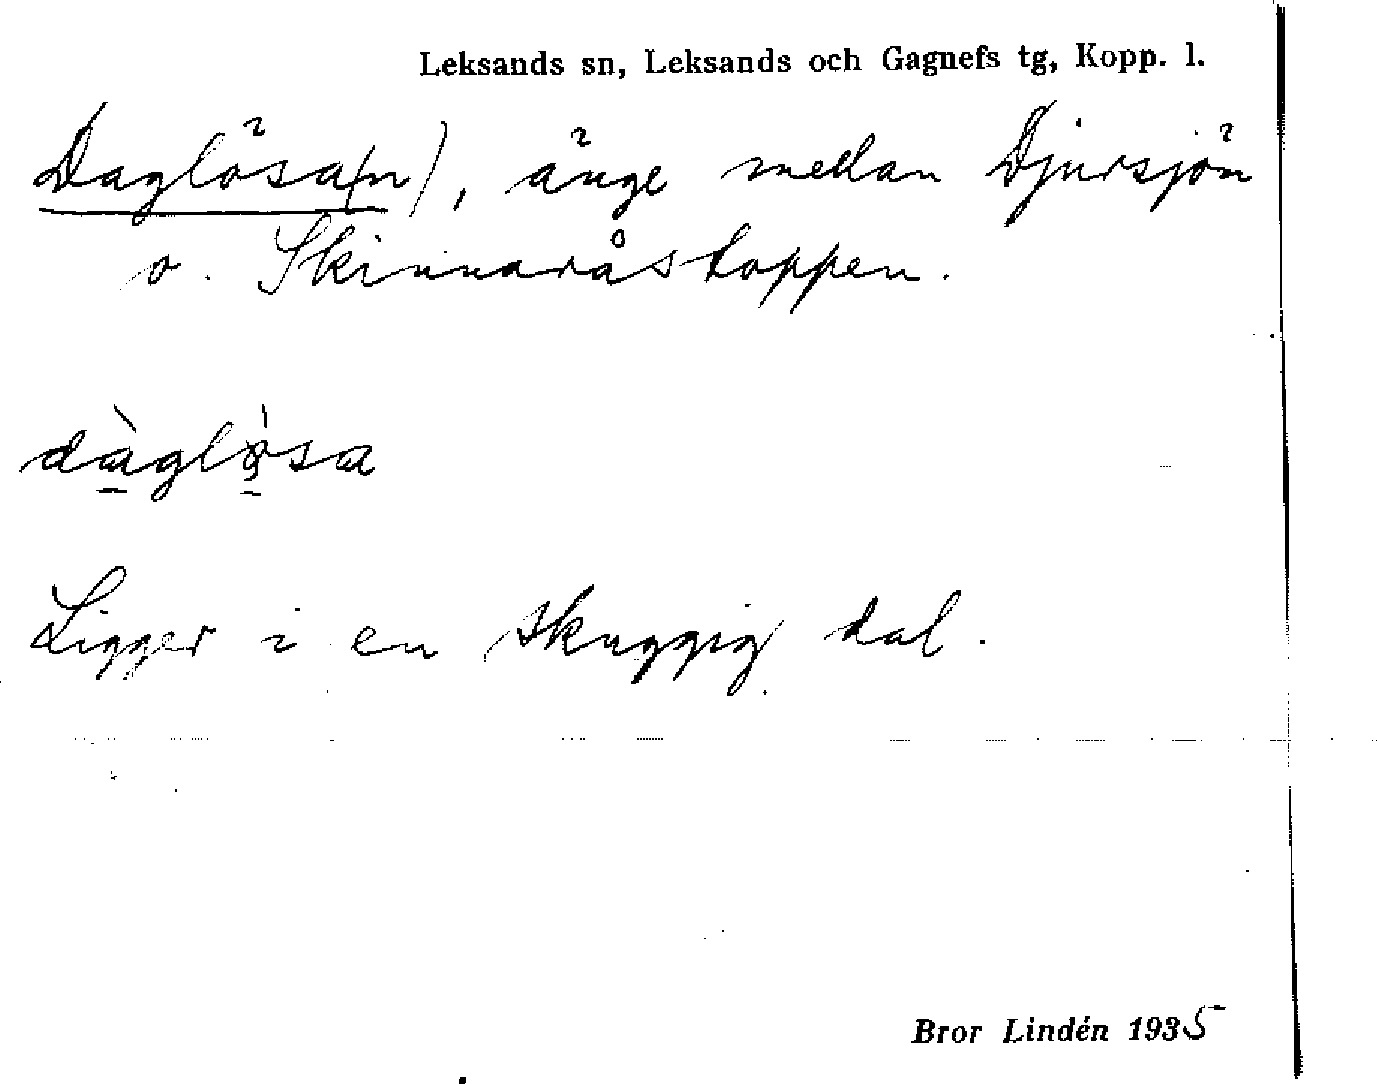 Leksands sn, Leksands och Gagnefs tg, Kopp. l.
Daglösa(n), änge mellan Djursjön
o. Skinnaråstoppen.
dàglö̀sa
Ligger i en skuggig dal.
Bror Lindén 1935